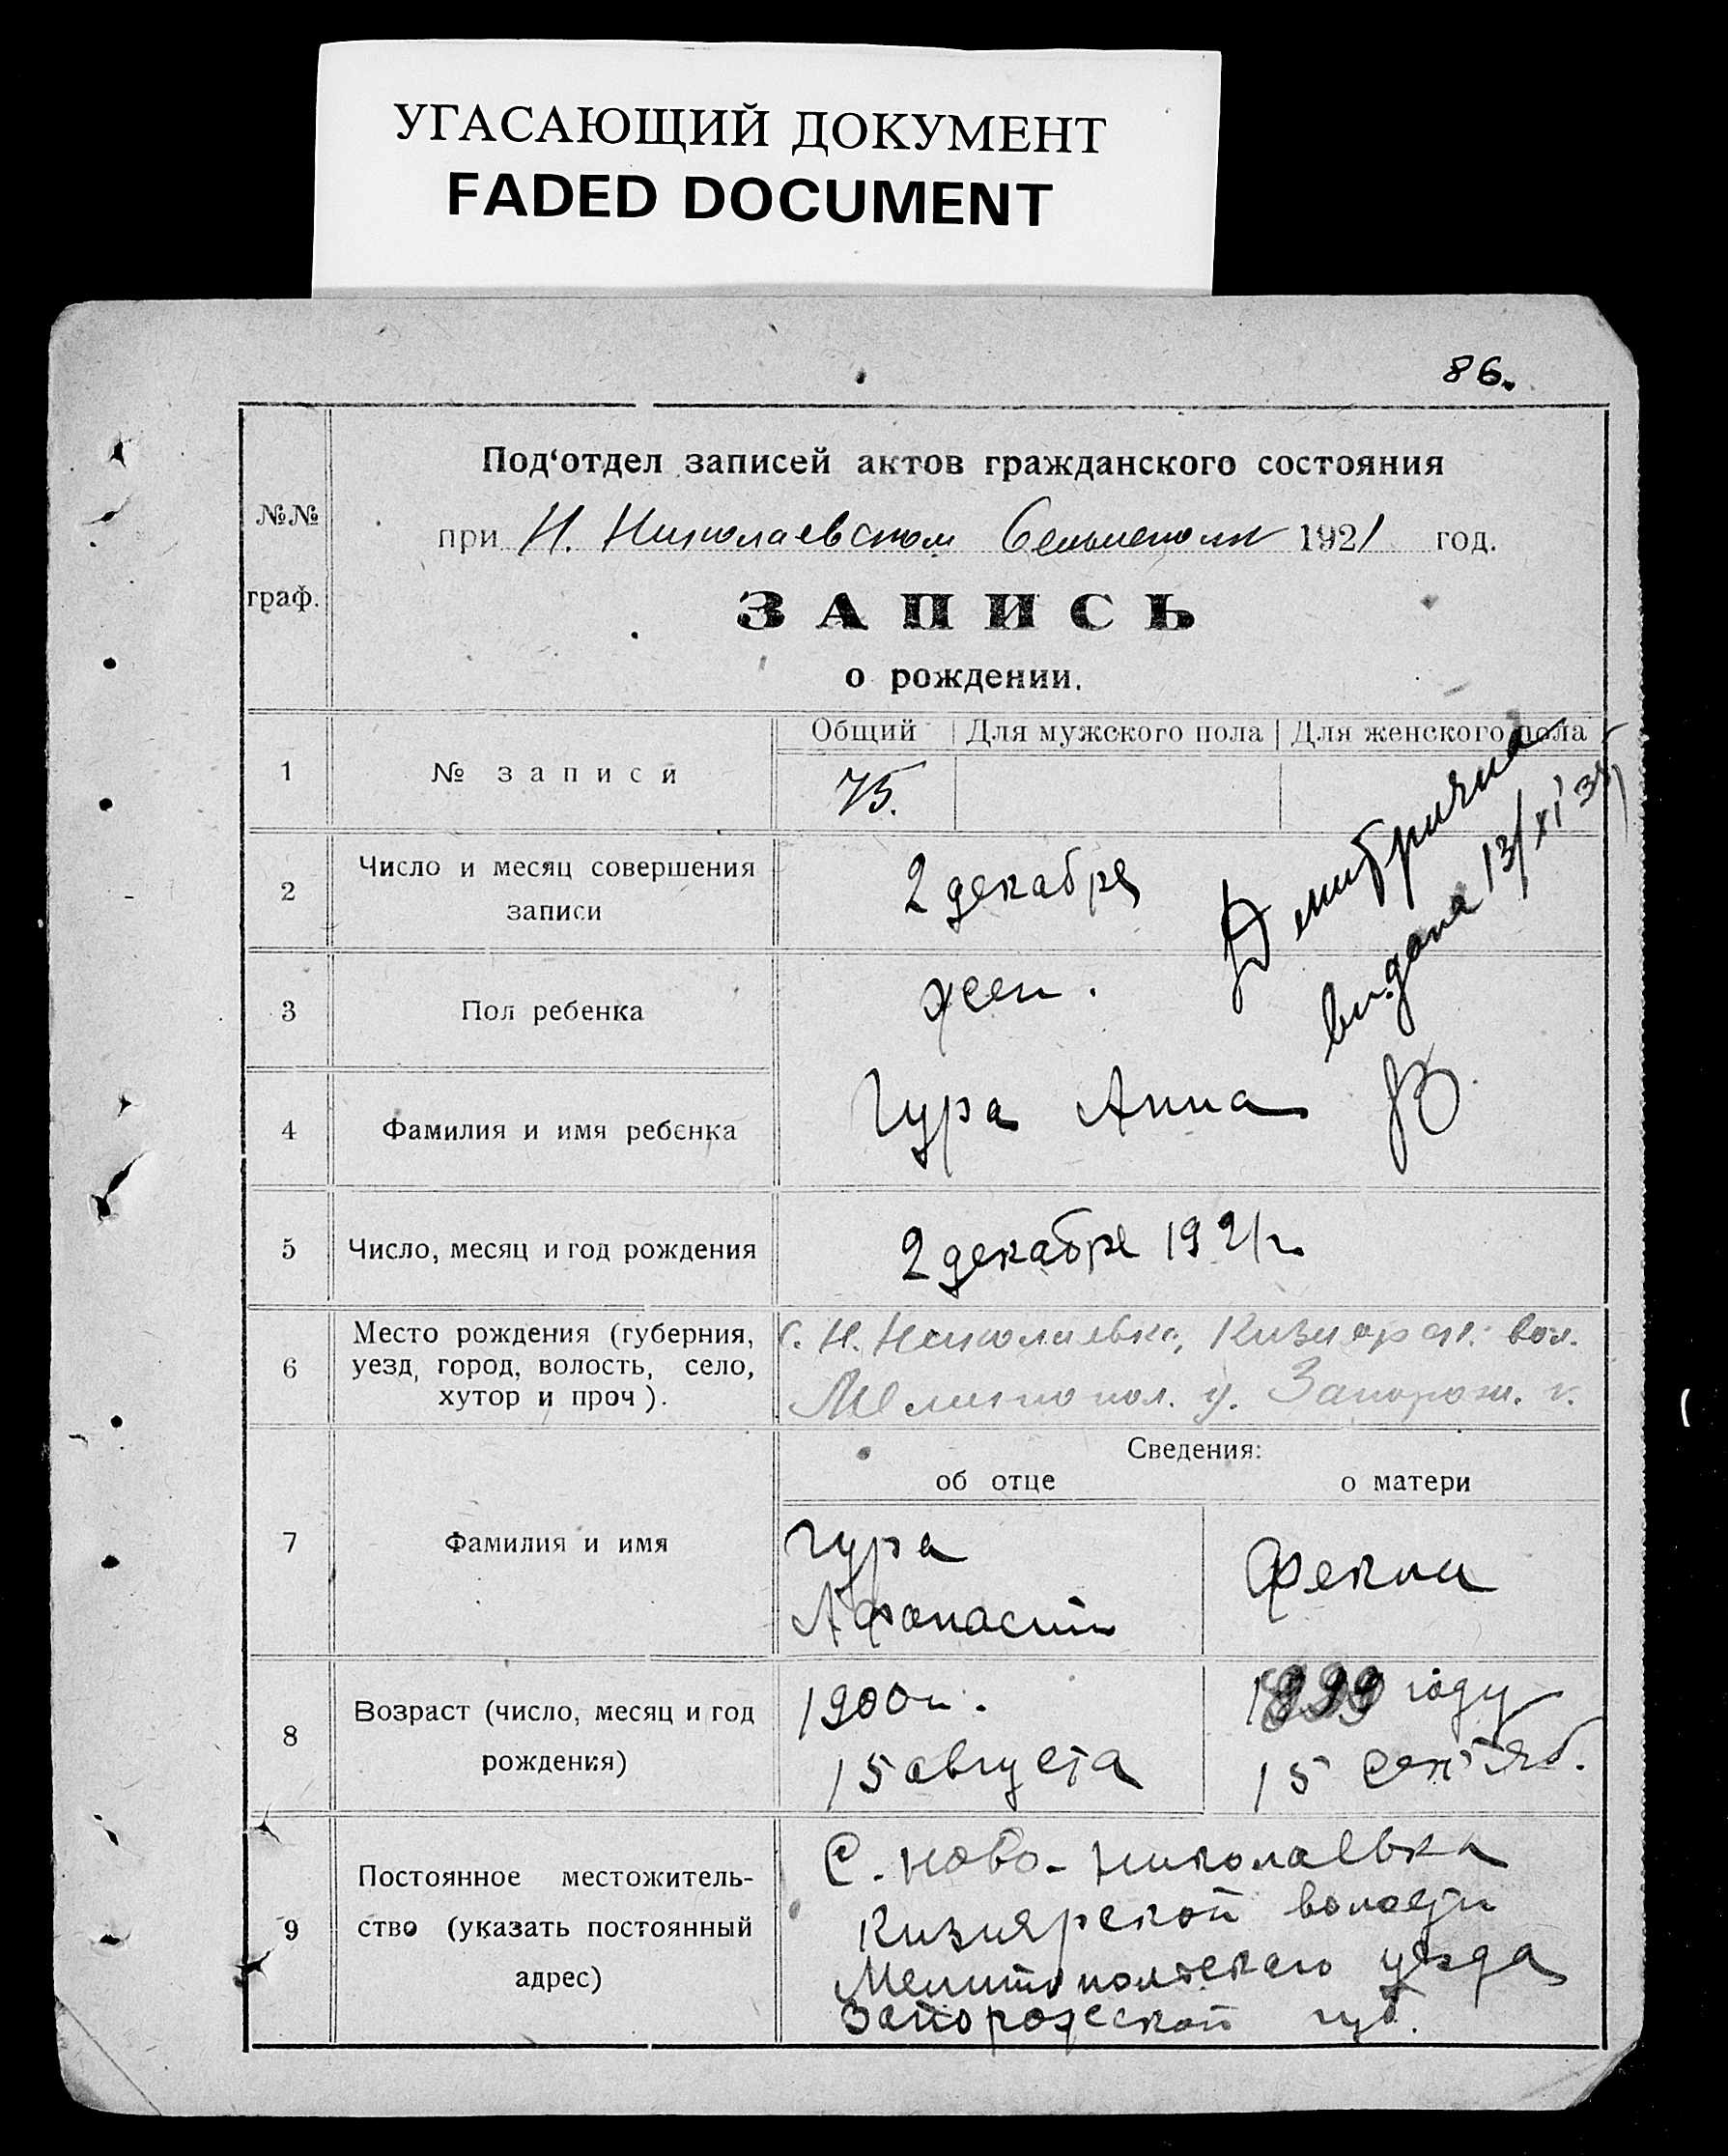 УГАСАЮЩИЙ ДОКУМЕНТ
FADED DOCUMENT
86.
№№
граф.
Под‘отдел записей актов гражданского состояния
при Н. Николаевском 1921 год.
ЗАПИСЬ
о рождении.
Общий Для мужского пола Для женского пола
1 № записи 75.
2 Число и месяц совершения
записи
2 декабря
видана 13/XI
3 Пол ребенка жен.
4 Фамилия и имя ребенка Гура Анна
5 Число, месяц и год рождения 2 декабря 1921 г.
6 Место рождения (губерния,
уезд, город, волость, село,
хутор и проч).
С. Н. Николаевка, Кизиярск. вол.
Мелитопол. у. Запорож. г.
Сведения:
об отце о матери
7 Фамилия и имя
Гура
Афонасий
Фекла
8 Возраст (число, месяц и год
рождения)
1900 г.
15 августа
1899 году
15 Сентяб.
9 Постоянное местожитель-
ство (указать постоянный
адрес)
С. Ново-Николаевка
Кизиярской волости
Мелитопольского уезда
Запорожской губ.